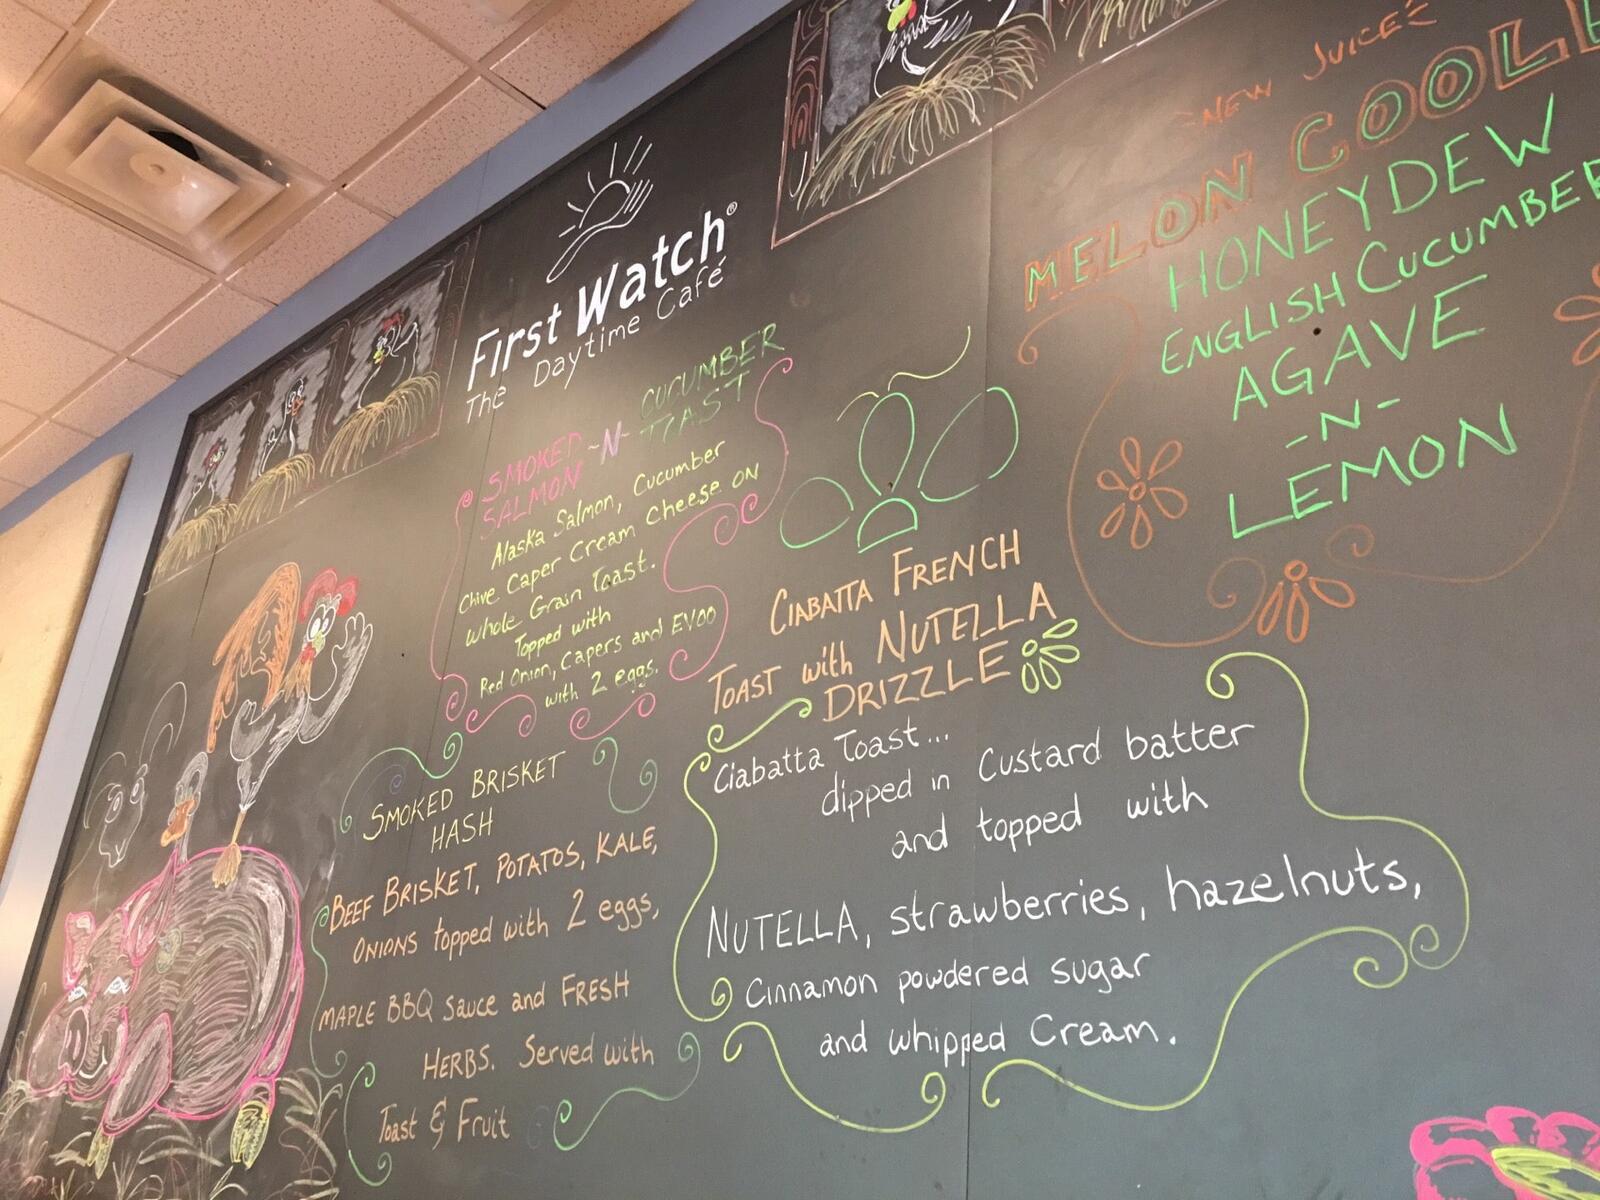 First Watch®
The Daytime Café
SMOKED -N- CUCUMBER
SALMON TOAST
Alaska Salmon, Cucumber
Chive Caper Cream Cheese ON
whole Grain Toast.
Topped with
Red Onion, Capers and EVOO
with 2 eggs.
SMOKED BRISKET
HASH
BEEF BRISKET, POTATOS, KALE,
ONIONS topped with 2 eggs,
MAPLE BBQ sauce and FRESH
HERBS. Served with
Toast & Fruit
CIABATTA FRENCH
TOAST with NUTELLA
DRIZZLE
Ciabatta Toast...
dipped in Custard batter
and topped with
NUTELLA, strawberries, hazelnuts,
Cinnamon powdered sugar
and whipped Cream.
NEW JUICE
MELON COOLE
HONEYDEW
ENGLISH CUCUMBER
AGAVE
-N-
LEMON